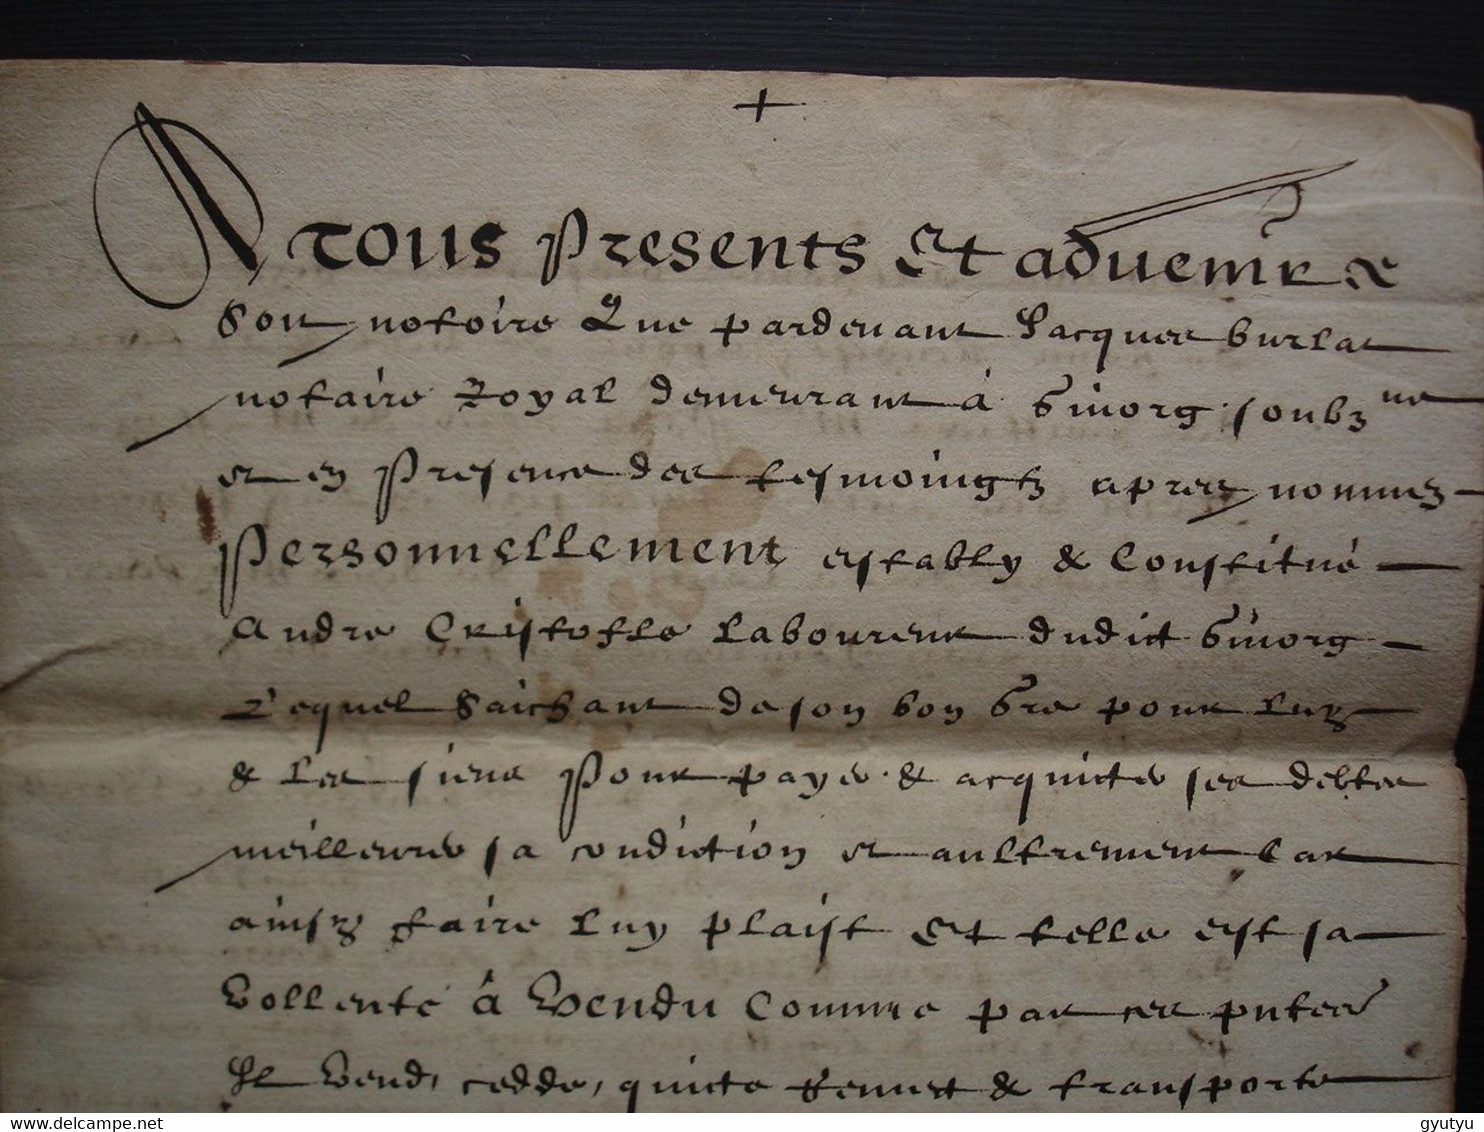 A tous presents Et advenir &
Soit notoire Que pardevant Jacques burlat
notaire Royal demeurant à Givorg soubz.ne
et en presence des tesmoingtz apres nommez
Personnellement estably & Constitué
Andre Cristofle Laboureur dudict Givorg
Lequel Saichant de son bon Gre pour Luy
& les siens Pour payer & acquicter ses debtes
meilleurer sa condiction et aultrement Car
ainsy faire Luy plaist Et telle est sa
vollenté à Vendu Comme par ces pntes
Il Vend, cedde, quicte Remet & transporte
gyutyu